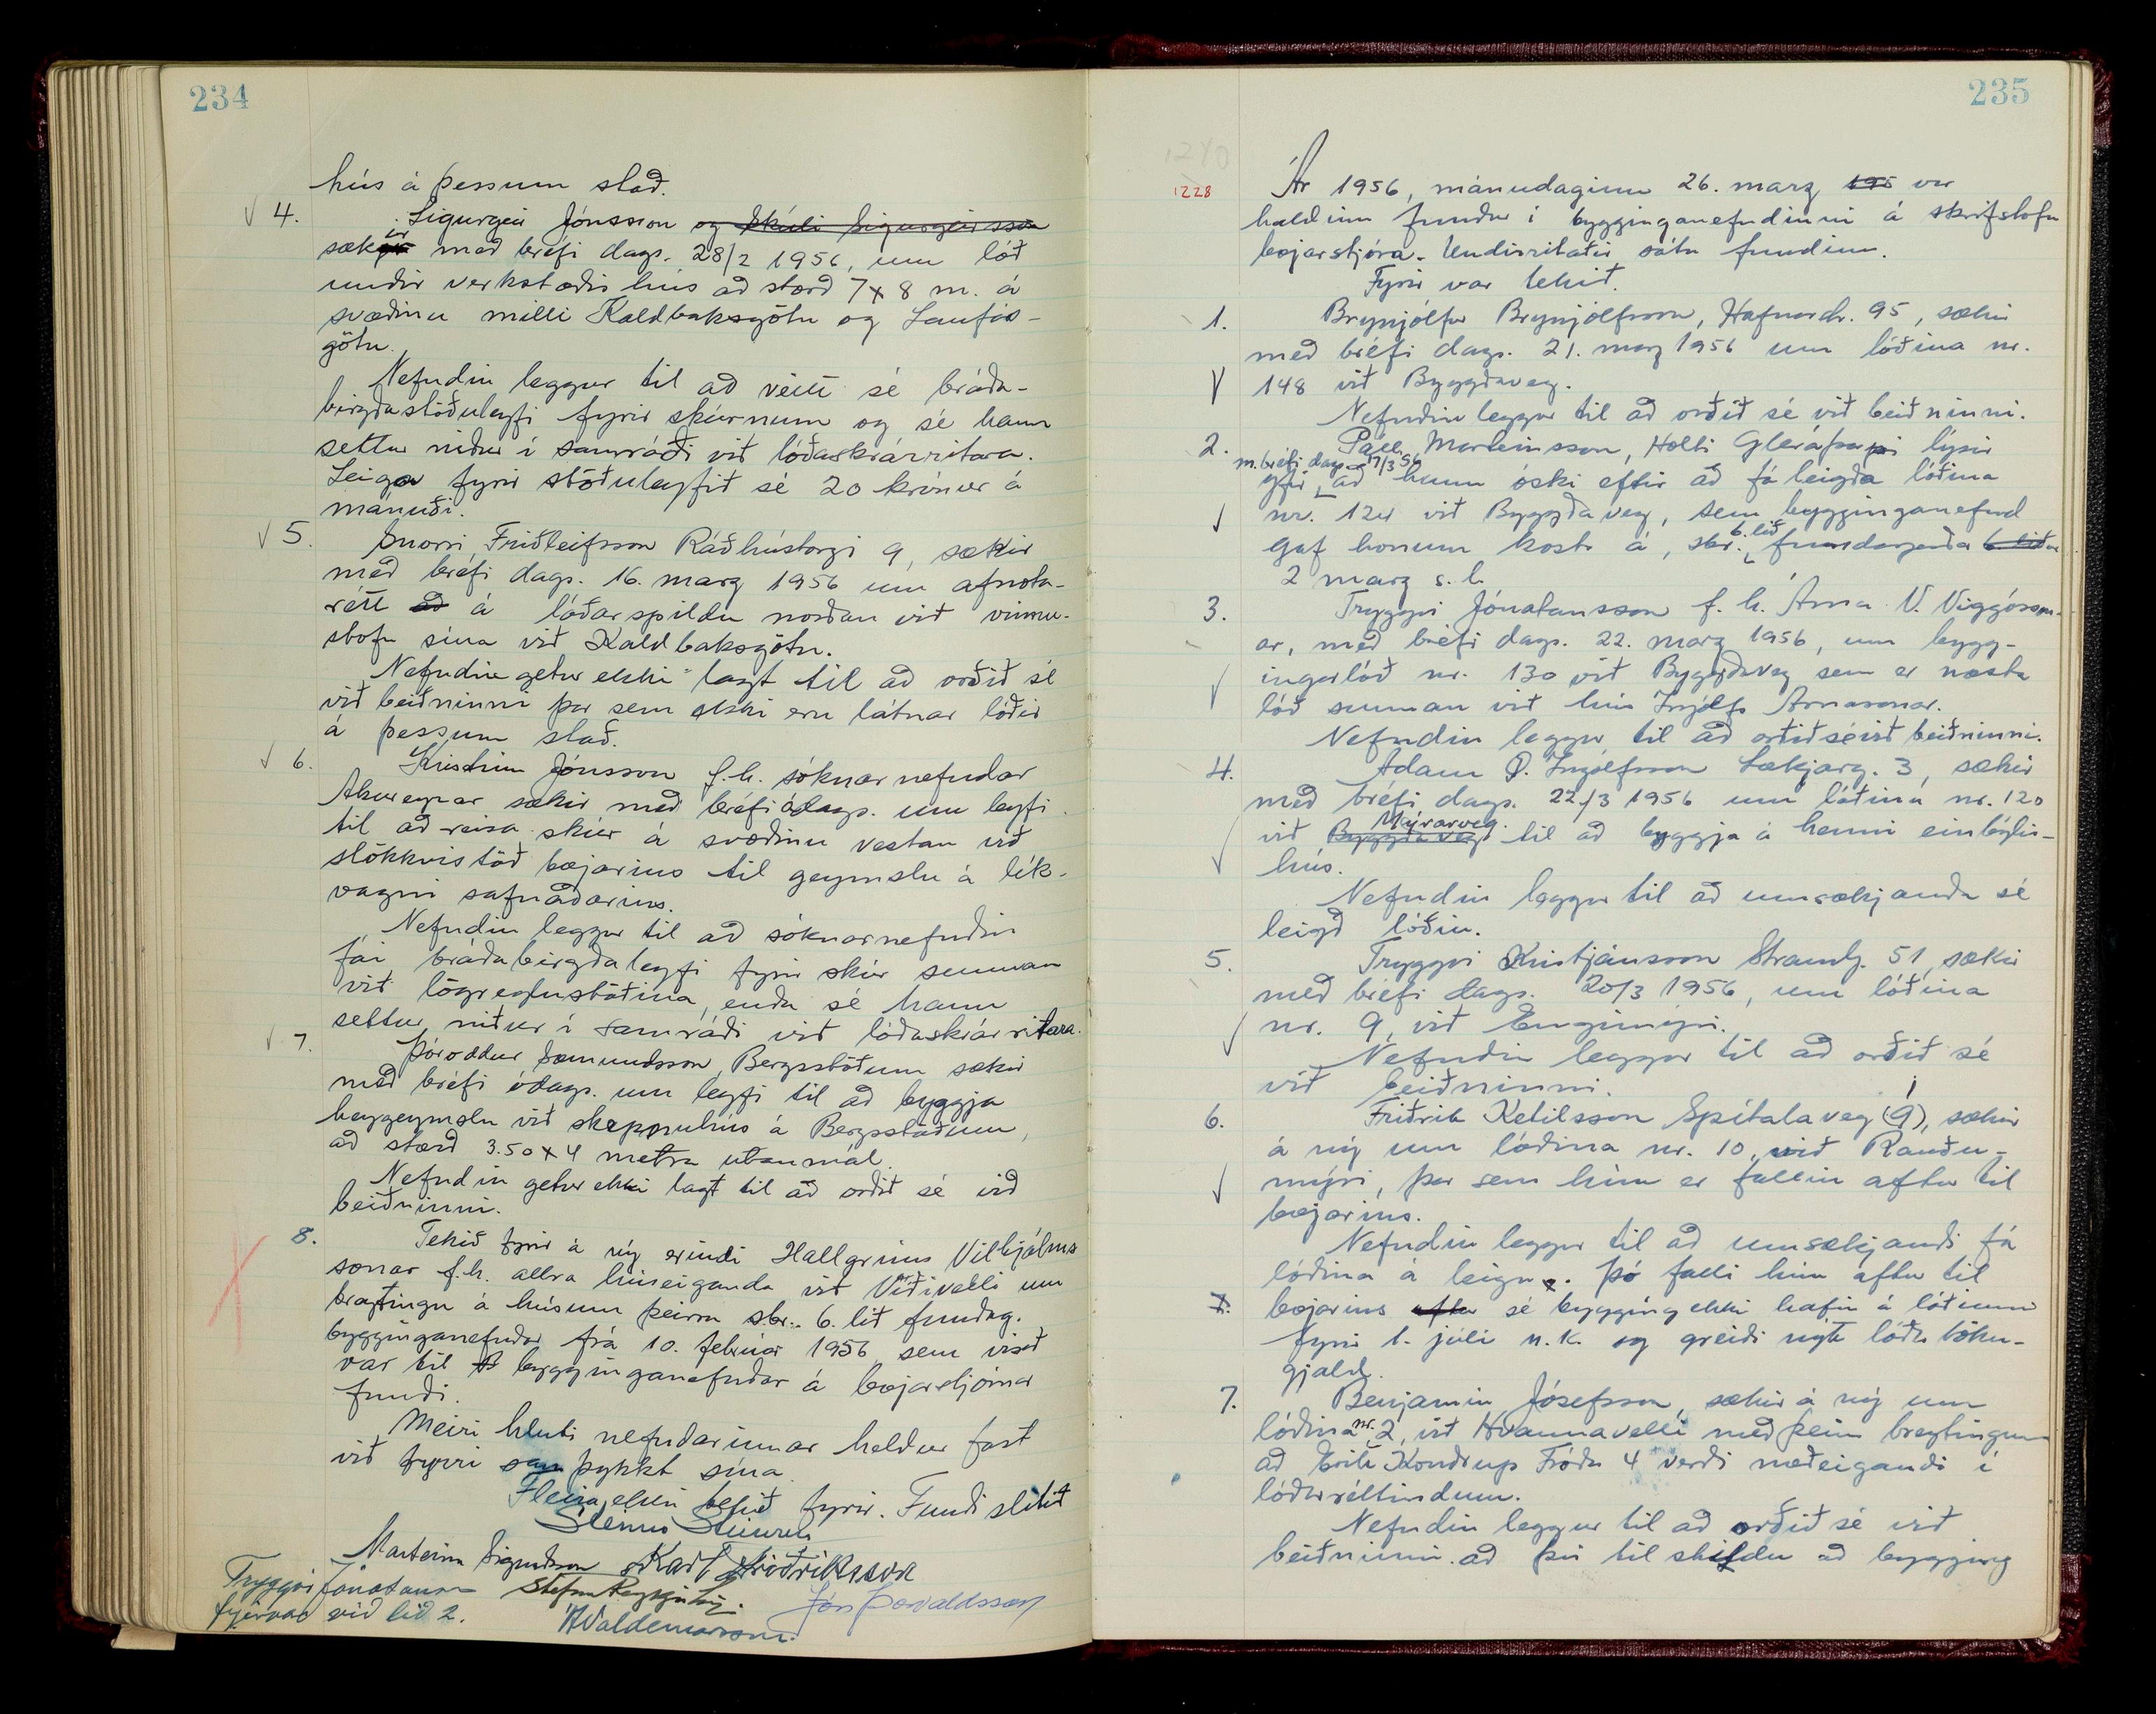 234
hús á þessum stað.
4. Sigurgeir Jónsson og Skúli Sigurgeirsson
sækir með bréfi dags. 28/2 1956, um lóð
undir verkstæðis hús að stærð 7x8 m. á
svæðinu milli Kaldbaksgötu og Laufás-
götu.
Nefndin leggur til að veitt sé bráða-
birgðastöðuleyfi fyrir skúrnum og sé hann
settur niður í samráði við lóðaskrárritara.
Leiga fyrir stöðuleyfið sé 20 krónur á
mánuði.
5. Snorri Friðleifsson Ráðhústorgi 9, sækir
með bréfi dags. 16. marz 1956 um afnota-
rétt að á lóðarspildu norðan við vinnu-
stofu sína við Kaldbaksgötu.
Nefndin getur ekki lagt til að orðið sé
við beiðninni þar sem ekki eru látnar lóðir
á þessum stað.
6. Kristinn Jónsson f.h. sóknarnefndar
Akureyrar sækir með bréfi ódags. um leyfi
til að reisa skúr á svæðinu vestan við
slökkvistöð bæjarins til geymslu á lík-
vagni safnaðarins.
Nefndin leggur til að sóknarnefndin
fái bráðabirgðaleyfi fyrir skúr sunnan
við lögreglustöðina, enda sé hann
settur niður í samráði við lóðaskrárritara.
7. Þóroddur Sæmundsson, Bergsstöðum sækir
með bréfi ódags. um leyfi til að byggja
heygeymslu við skeppnuhús á Bergsstöðum,
að stærð 3.50x4 metra utanmál.
Nefndin getur ekki lagt til að orðið sé við
beiðninni.
8. Tekið fyrir á ný erindi Hallgríms Vilhjálms
sonar f.h. allra húseiganda við Víðivelli um
breytingu á húsum þeirra sbr. 6. lið fundag.
bygginganefndar frá 10. febrúar 1956, sem vísað
var til bygginganefndar á bæjarstjórnar
fundi.
Meiri hluti nefndarinnar heldur fast
við fyrri samþykkt sína.
Fleira ekki tekið fyrir. Fundi slitið
Steinn Steinsen
Marteinn Sigurðsson Karl Friðriksson
Tryggvi Jónatansson Stefán Reykjalín.
fjërvar við lið 2. Jón Þorvaldsson
Valdemarsson.
235
1240
1228
Ár 1956, mánudaginn 26. marz 195 var
haldinn fundur í bygginganefndinni á skrifstofu
bæjarstjóra. Undirritaðir sátu fundinn.
Fyrir var tekið.
1. Brynjólfur Brynjólfsson, Hafnarstr. 95, sækir
með bréfi dags. 21. marz 1956 um lóðina nr.
148 við Byggðaveg.
Nefndin leggur til að orðið sé við beiðninni.
2. Páll Marteinsson, Holti Glerárþorpi lýsir
m. bréfi dags. 17/3 56
yfir að hann óski eftir að fá leigða lóðina
nr. 124 við Byggðaveg, sem bygginganefnd
6. lið
gaf honum kost á, sbr. fundargerða 6. liður
2 marz s.l.
3. Tryggvi Jónatansson f.h. Árna V. Viggósson-
ar, með bréfi dags. 22. marz 1956, um bygg-
ingarlóð nr. 130 við Byggðaveg sem er næsta
lóð sunnan við hús Ingólfs Árnasonar.
Nefndin leggur til að orðið sé við beiðninni.
4. Adam Ingólfsson Lækjarg. 3, sækir
með bréfi dags. 22/3 1956 um lóðina nr. 120
Mýrarveg.
við Byggðaveg til að byggja á henni einbýlis-
hús.
Nefndin leggur til að umsækjanda sé
leigð lóðin.
5. Tryggvi Kristjánsson Strandg. 51, sækir
með bréfi dags. 20/3 1956, um lóðina
nr. 9, við Engimýri.
Nefndin leggur til að orðið sé
við beiðninni.
6. Friðrik Ketilsson Spítalaveg (9), sækir
á ný um lóðina nr. 10, við Rauðu-
mýri, þar sem hún er fallin aftur til
bæjarins.
Nefndin leggur til að umsækjandi fá
lóðina á leigu. Þó falli hún aftur til
7. bæjarins aftur sé bygging ekki hafin á lóðinni
fyrir 1. júlí n.k. og greiði nýtt lóðatöku-
gjald.
7. Benjamín Jósefsson, sækir á ný um
lóðina nr. 2, við Hvannavelli með þeim breytingum
að Erik Kondrup Fróða 4 verði meðeigandi í
lóðarréttindum.
Nefndin leggur til að orðið sé við
beiðninni að því til skildu að bygging